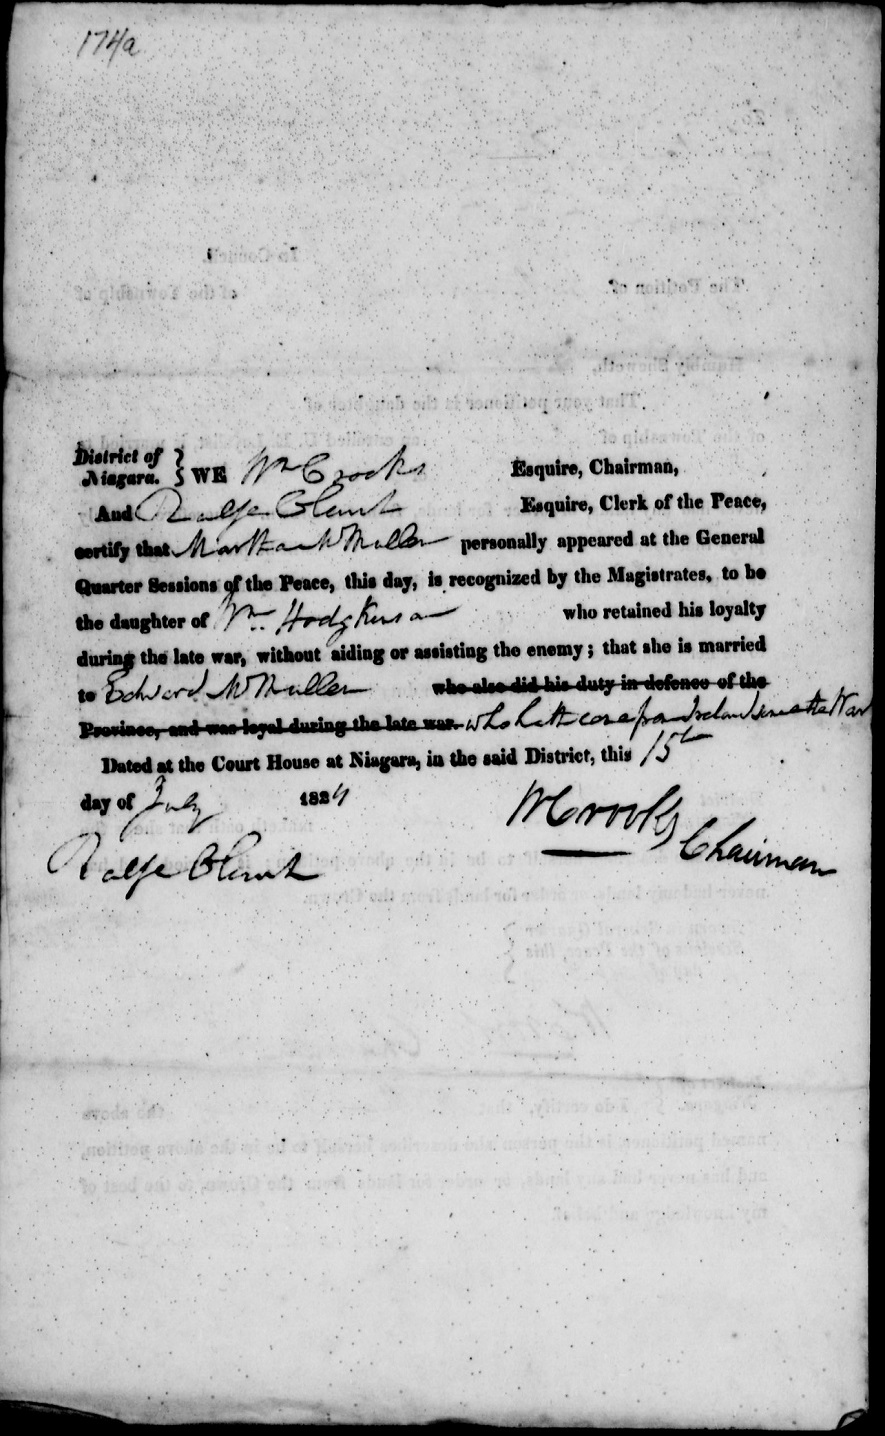 174a
District of Niagara. } WE Wm Crooks Esquire, Chairman,
And Ralfe Clench Esquire, Clerk of the Peace,
certify that Martha McMullen personally appeared at the General
Quarter Sessions of the Peace, this day, is recognized by the Magistrates, to be
the daughter of Wm. Hodgkinson who retained his loyalty
during the late war, without aiding or assisting the enemy; that she is married
to Edward McMullen who also did his duty in defence of the
Province, and was loyal during the late war. who hath come from Ireland since the War
Dated at the Court House at Niagara, in the said District, this 15th
day of July 1824
WCrooks
Chairman
Ralfe Clench